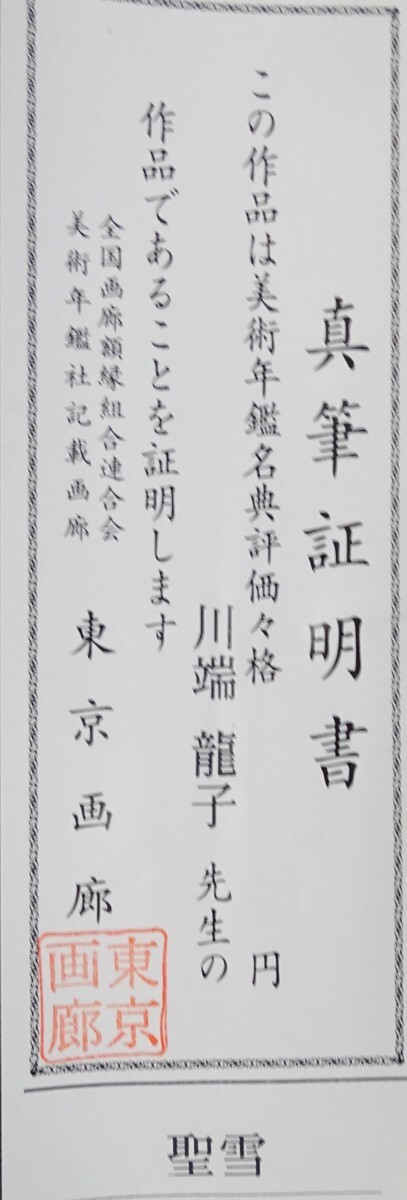 真筆証明書
この作品は美術年鑑名典評価々格　円
川端 龍子 先生の
作品であることを証明します
全国画廊額縁組合連合会
美術年鑑社記載画廊
東京画廊
東京
画廊
聖雪